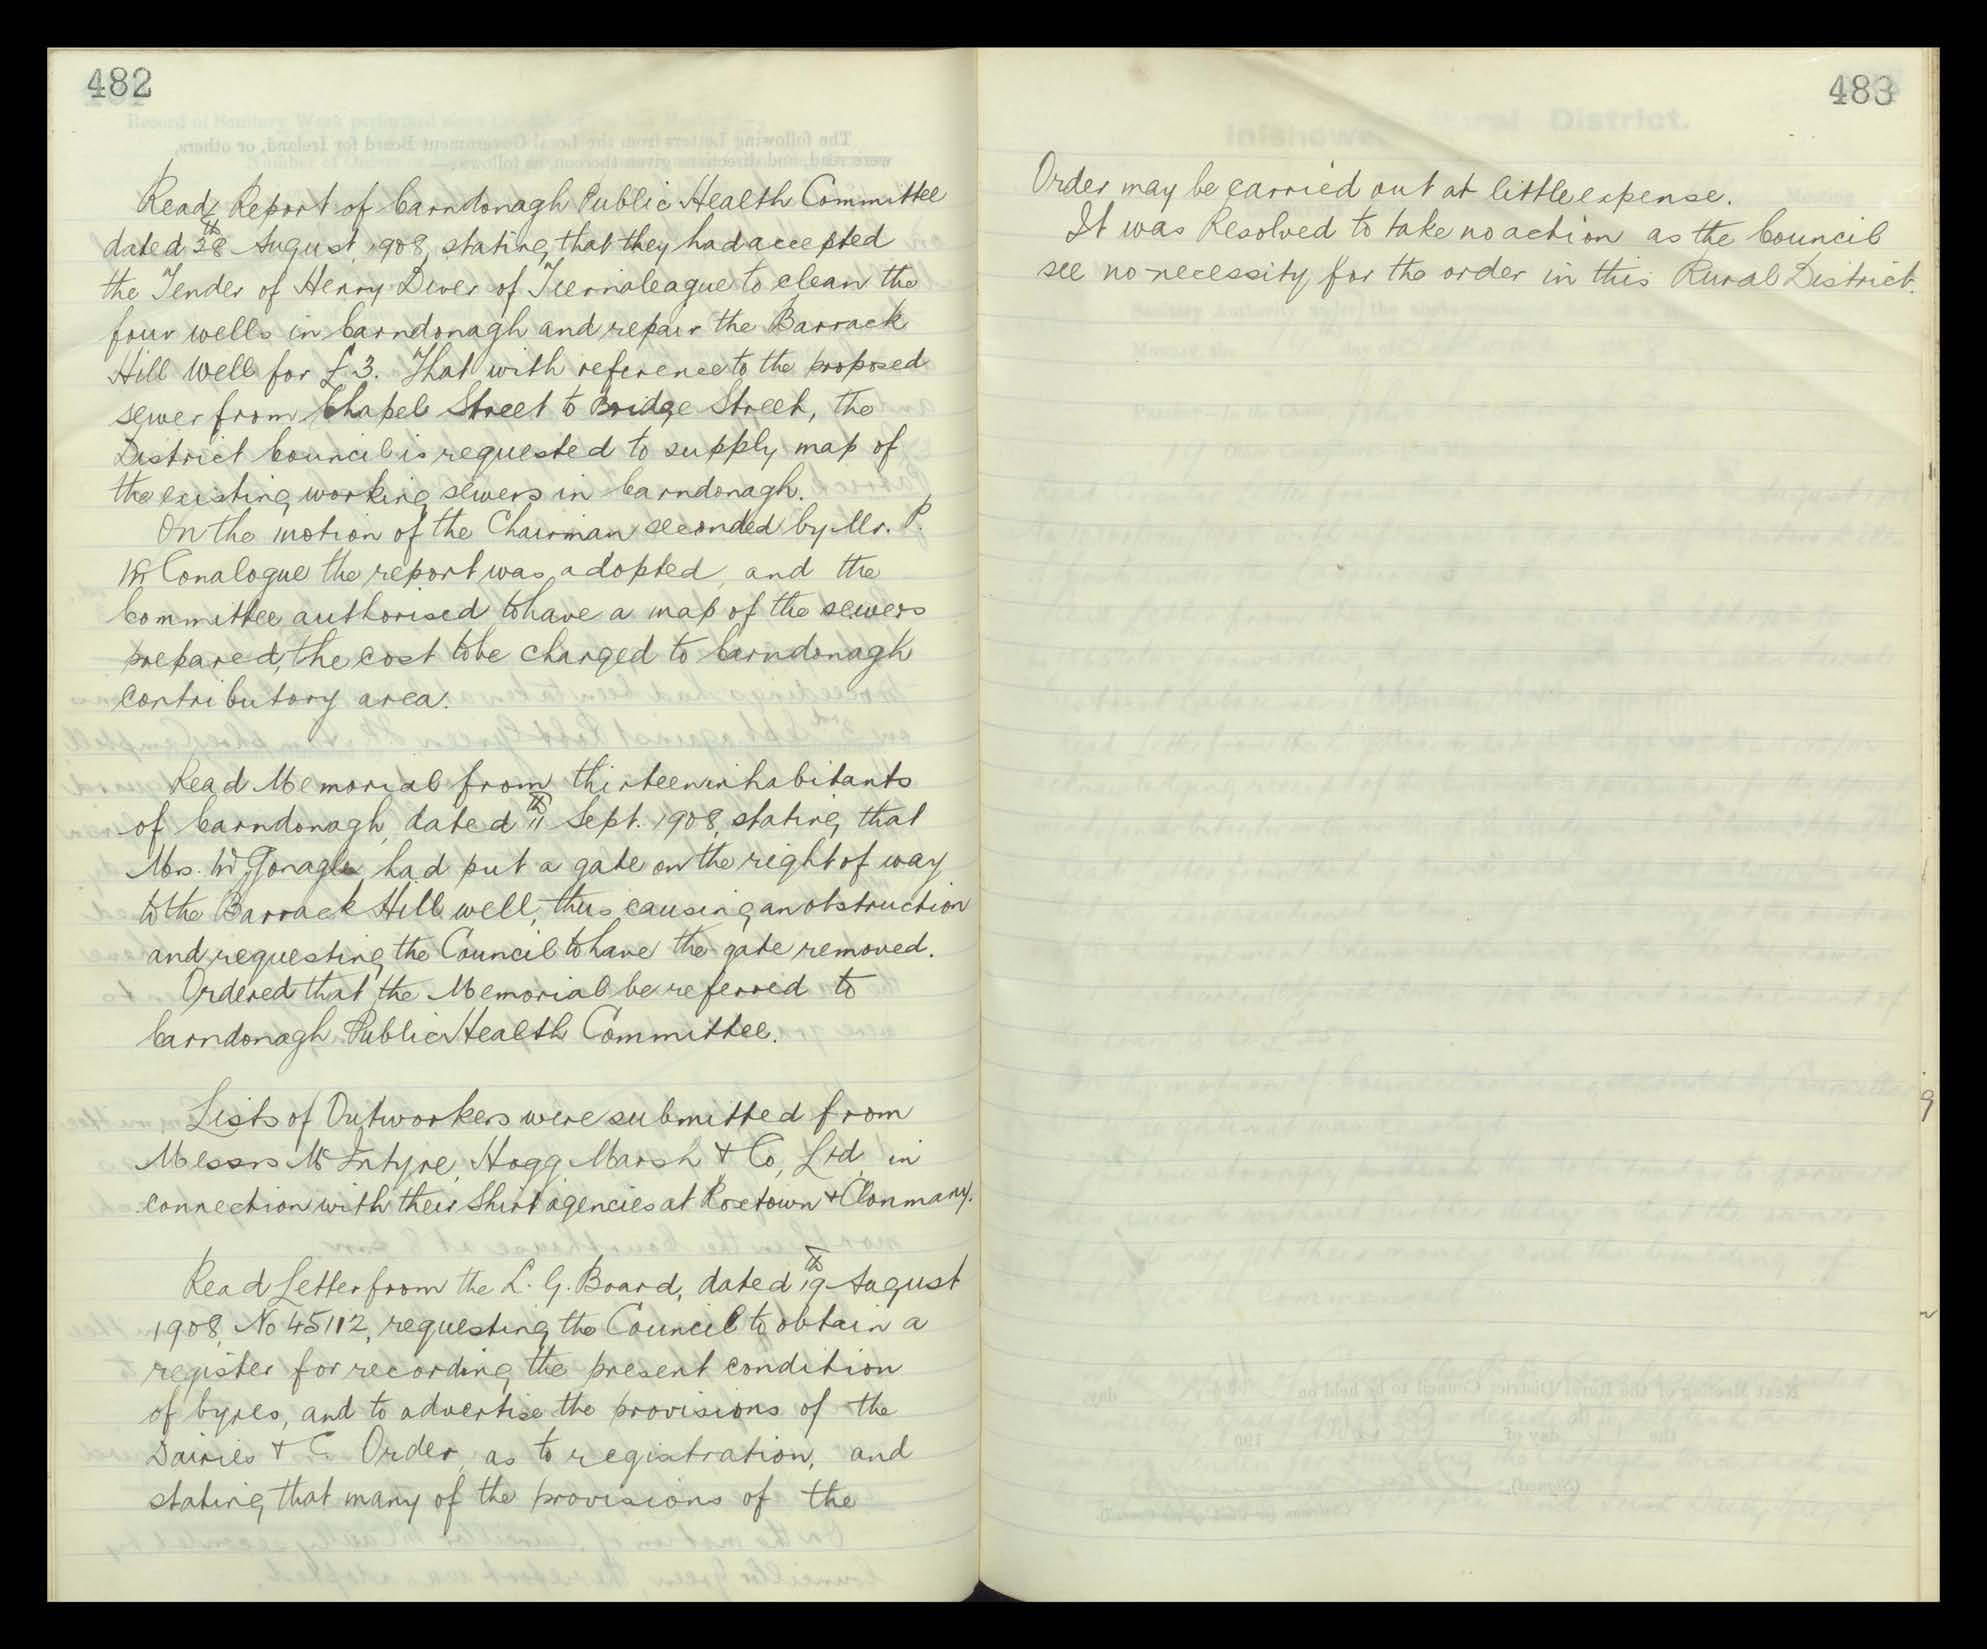 482
Read Report of Carndonagh Public Health Committee
dated 28th August, 1908, stating that they had accepted
the Tender of Henry Diver of Tiernaleague to clean the
four wells in Carndonagh and repair the Barrack
Hill Well for £3. That with reference to the proposed
sewer from Chapel Street to Bridge Street, the
District Council is requested to supply map of
the existing working sewers in Carndonagh.
On the motion of the Chairman seconded by Mr. P.
McConalogue the report was adopted, and the
Committee authorised to have a map of the sewers
prepared, the cost to be charged to Carndonagh
contributory area.
Read Memorial from thirteen inhabitants
of Carndonagh, dated 11th Sept. 1908, stating that
Mrs. McGonagle had put a gate on the right of way
to the Barrack Hill well, thus causing an obstruction
and requesting the Council to have the gate removed.
Ordered that the Memorial be referred to
Carndonagh Public Health Committee.
Lists of Outworkers were submitted from
Messrs McIntyre, Hogg Marsh & Co, Ltd, in
connection with their Shirt agencies at Roxtown & Clonmany.
Read Letter from the L. G. Board, dated 19th August
1908, No 45112, requesting the Council to obtain a
register for recording the present condition
of byres, and to advertise the provisions of the
Dairies & C. Order, as to registration, and
stating that many of the provisions of the
483
Order may be carried out at little expense.
It was Resolved to take no action as the Council
see no necessity for the order in this Rural District.